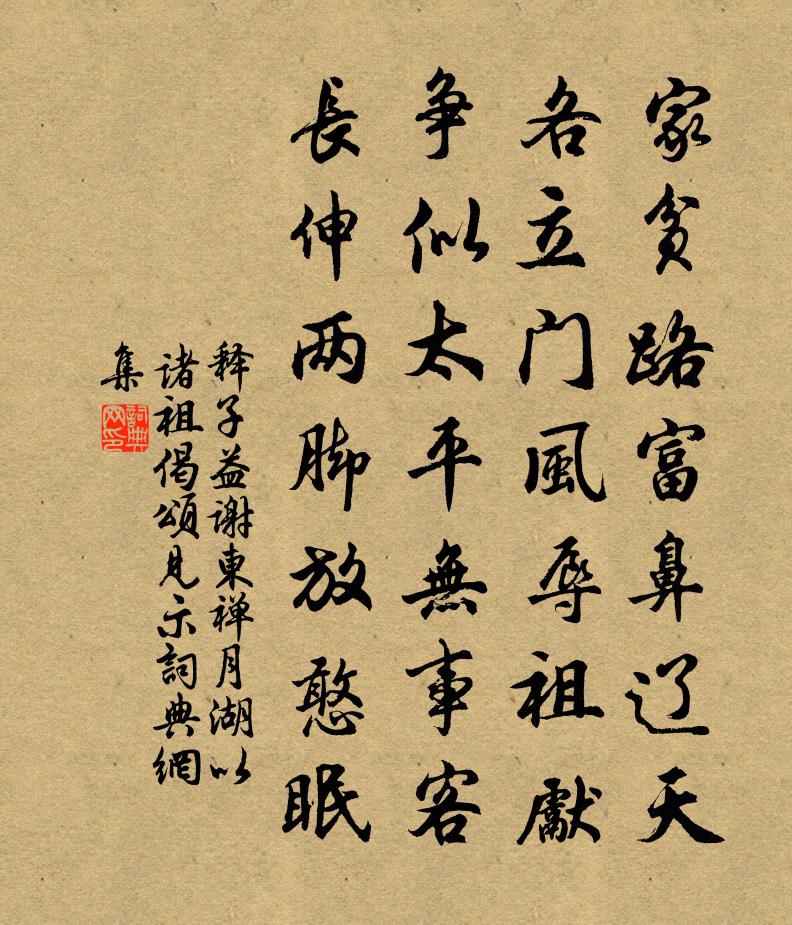 家贫路富鼻辽天
各立门風辱祖獻
争似太平無事客
長伸两脚放憨眠
释子益謝東禅月湖以
諸祖偈頌见示詞典網
集
詞典网印